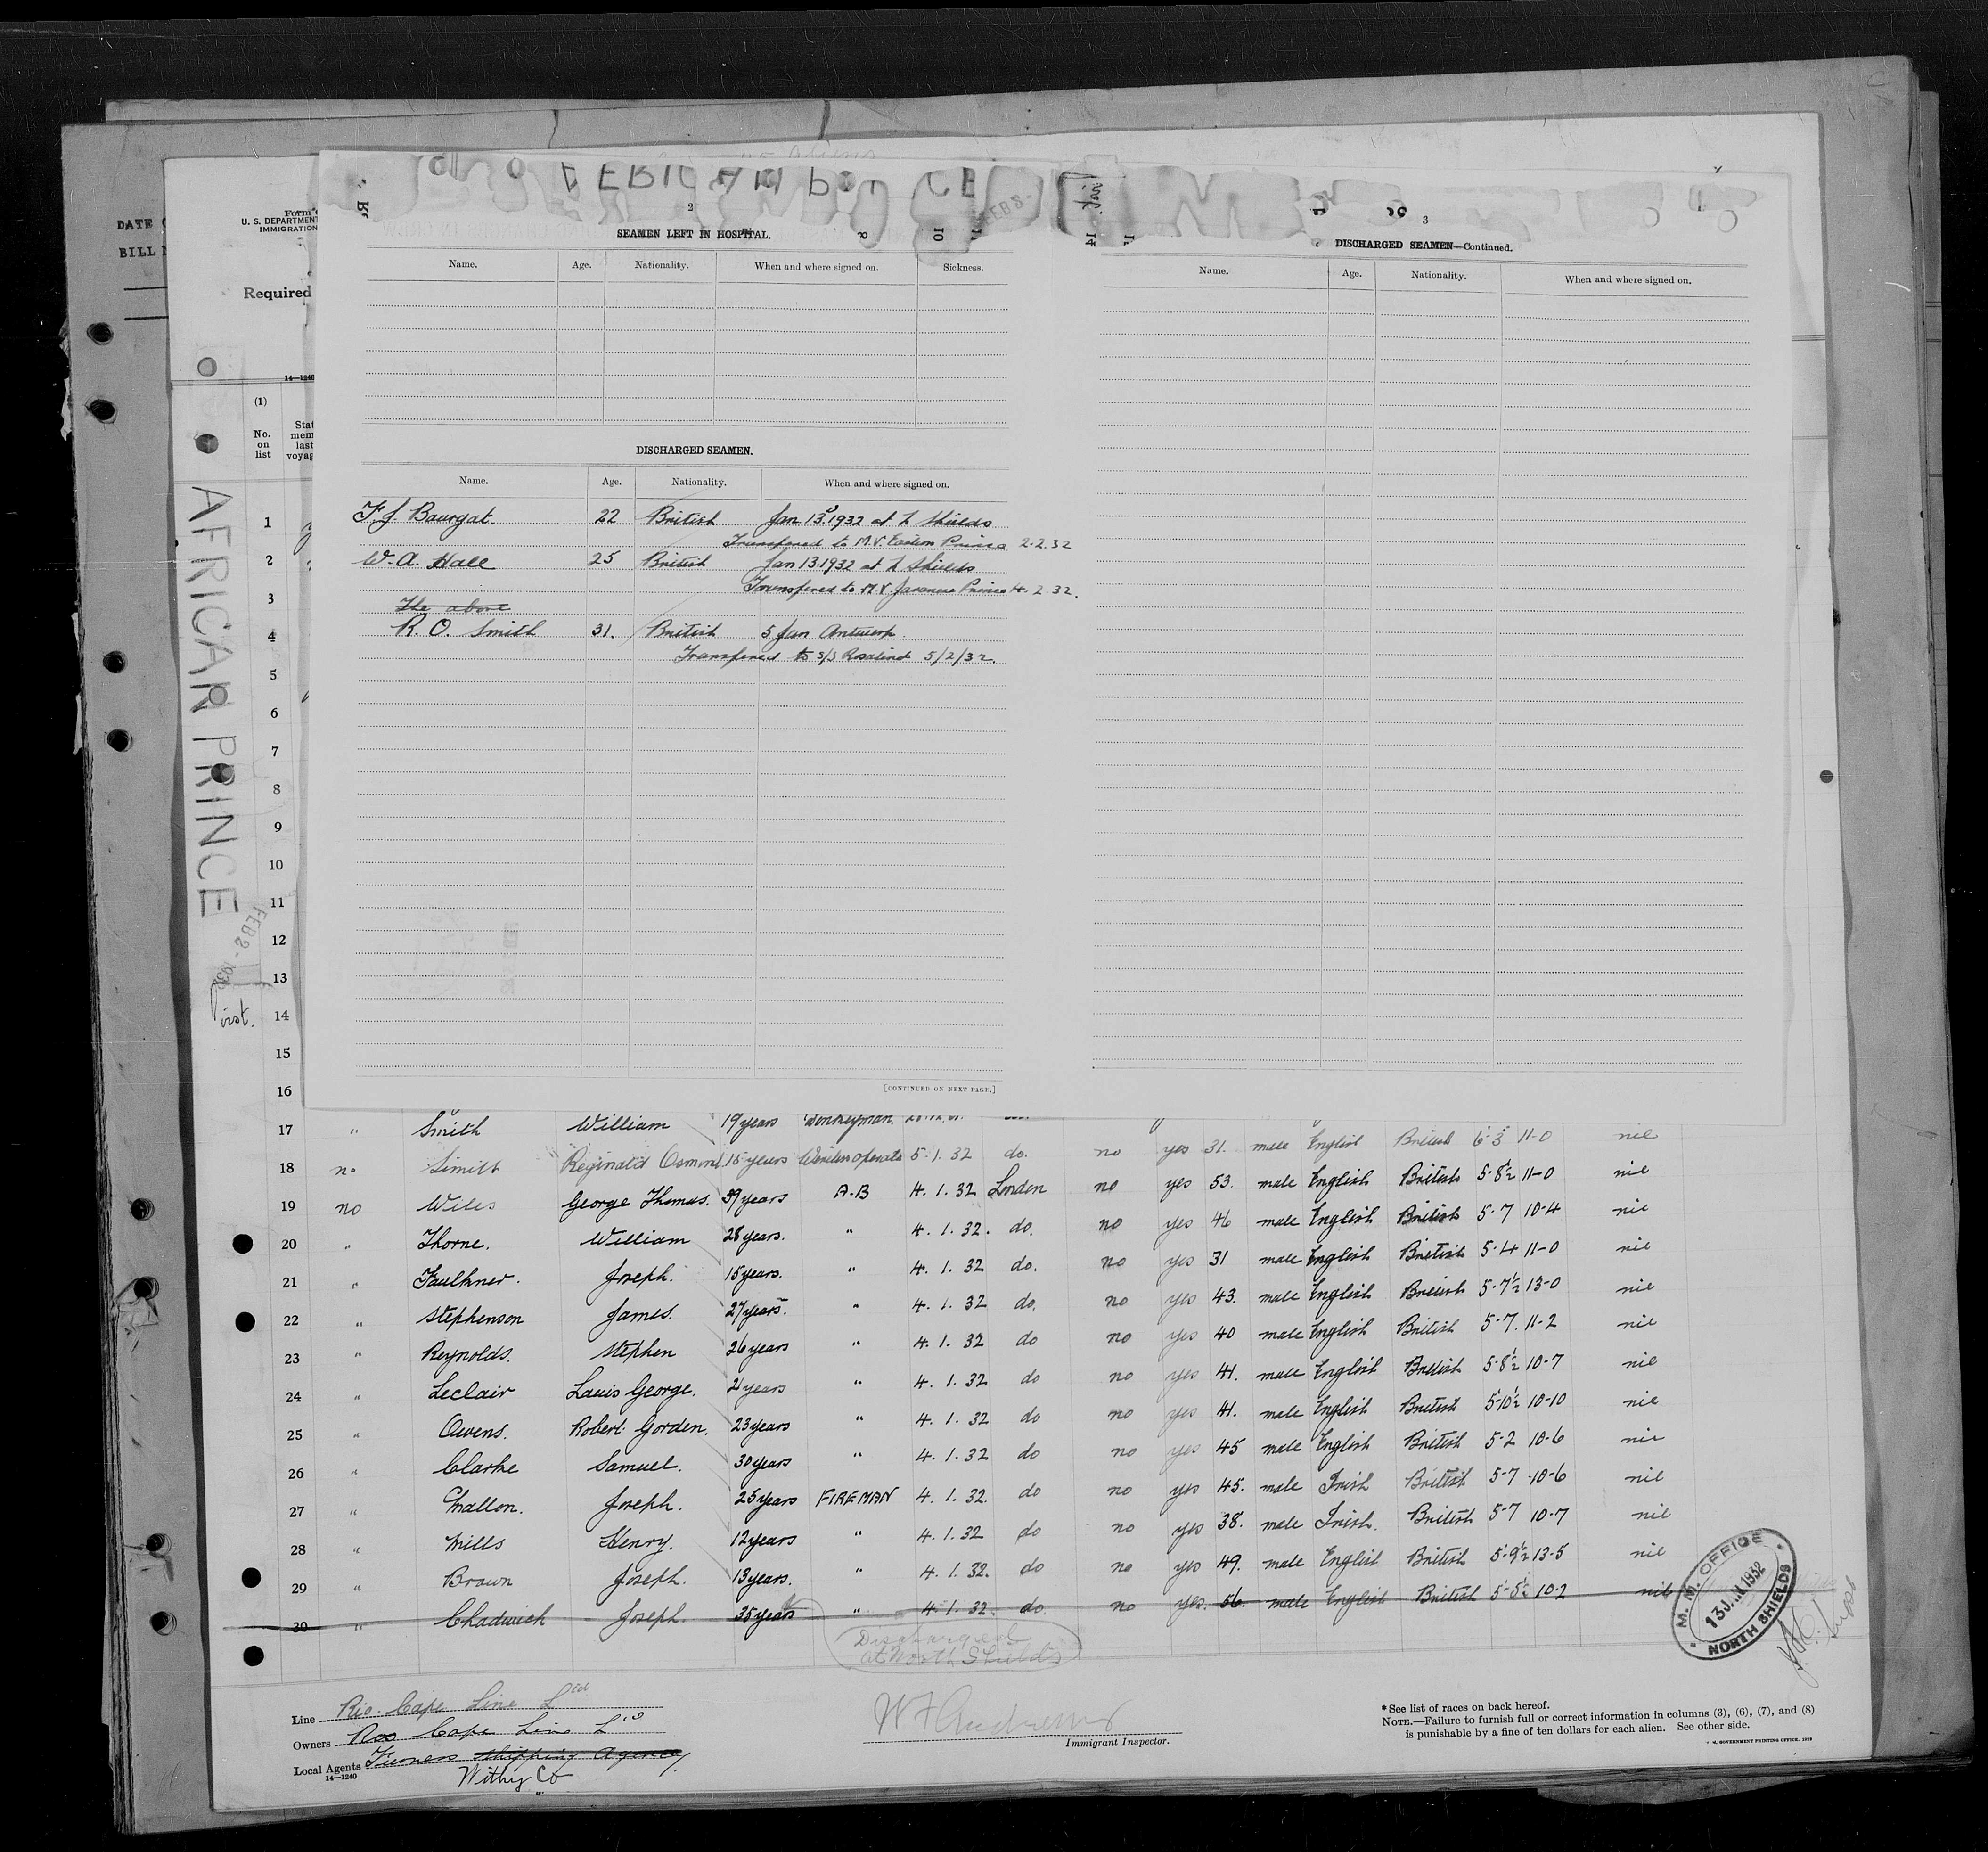 DATE
BILL
Form
U. S. DEPARTMENT
IMMIGRATION
Required
14—1240
(1)
No. on list
AFRICAN PRINCE
FEB 2 - 1932
2
SEAMEN LEFT IN HOSPITAL.
Name. Age. Nationality. When and where signed on. Sickness.
DISCHARGED SEAMEN.
Name. Age. Nationality. When and where signed on.
F J. Baurgat. 22 British Jan 13.1932 at N Shields
Transfered to M.V. Eastern Prince 2.2.32
W. A. Hall 25 British Jan 13.1932 at N Shields
Transfered to M.V. Javanese Prince 4.2.32.
The above
R. O. Smith 31. British 5 Jan Antwerp.
Transfered to S/S Rosalind 5/2/32.
[CONTINUED ON NEXT PAGE.]
3
DISCHARGED SEAMEN—Continued.
Name. Age. Nationality. When and where signed on.
1
2
3
4
5
6
7
8
9
10
11
12
13
14
15
16
17 " Smith William 19 years Donkeyman
18 no Smith Reginald Osmond 15 years Wireless operator 5.1.32 do. no yes 31. male English British 6-3 11-0 nil
19 no Wiles George Thomas. 39 years A.B 4.1.32 London no yes 53. male English British 5-8½ 11-0 nil
20 " Thorne. William 28 years. " 4.1.32. do. no yes 46 male English British 5-7 10-4 nil
21 " Faulkner. Joseph. 15 years. " 4.1.32 do. no yes 31 male English British 5-4 11-0 nil
22 " Stephenson James. 27 years. " 4.1.32 do. no yes 43. male English British 5-7½ 13-0 nil
23 " Reynolds. Stephen 26 years " 4.1.32 do no yes 40 male English British 5-7. 11-2 nil
24 " Leclair Louis George. 21 years " 4.1.32 do no yes 41. male English British 5-8½ 10-7 nil
25 " Owens. Robert Gorden. 23 years " 4.1.32 do no yes 41. male English British 5-10½ 10-10 nil
26 " Clarke Samuel. 30 years " 4.1.32 do no yes 45 male English British 5-2 10-6 nil
27 " Mallon. Joseph. 25 years FIREMAN 4.1.32. do no yes 45. male Irish British 5-7 10-6 nil
28 " Mills Henry. 12 years " 4.1.32 do no yes 38. male Irish. British 5-7 10-7 nil
29 " Brown Joseph. 13 years. " 4.1.32. do no yes 49. male English British 5-9½ 13-5 nil
30 " Chadwick Joseph. 35 years " 4.1.32. do. no yes. 56. male English British 5-5½ 10-2 nil
Discharged
at North Shields
M. M. OFFICE
13 JAN 1932
NORTH SHIELDS
Line Rio Cape Line Ltd
Owners Rio Cape Line Ltd
Local Agents Furness Shipping Agency,
Withy Co
14—1240
W F Andrews
Immigrant Inspector.
*See list of races on back hereof.
NOTE.—Failure to furnish full or correct information in columns (3), (6), (7), and (8)
is punishable by a fine of ten dollars for each alien. See other side.
GOVERNMENT PRINTING OFFICE